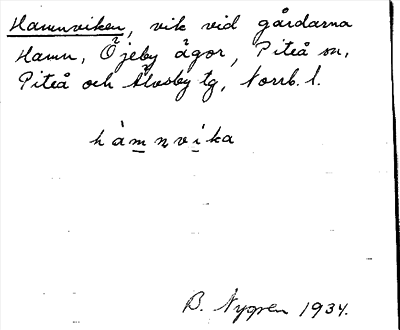 Hamnviken, vik vid gårdarna
Hamn, Öjeby ägor, Piteå sn,
Piteå och Älvsby tg, Norrb. l.
hàmnvíka
B. Nygren 1934.